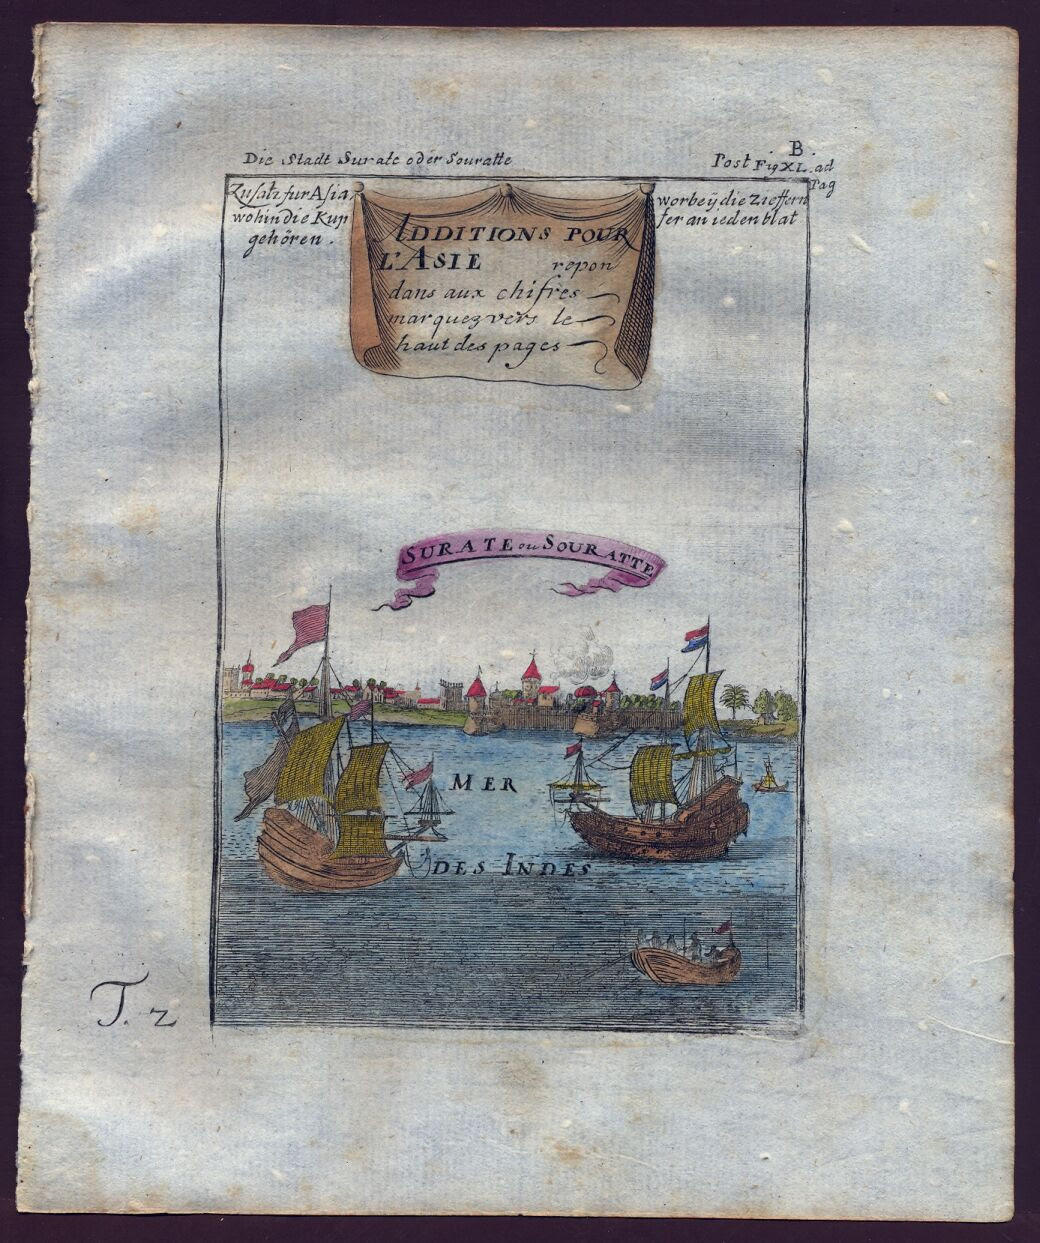 Die Stadt Surate oder Souratte
B.
Post Fig XL. ad
Pag
Zusatz fur Asia,
wohin die Kup
gehören.
worbeÿ die Zieffern
fer an ieden blat
ADDITIONS POUR
L'ASIE repon
dans aux chifres
marquez vers le
haut des pages
SURATE ou SOURATTE
MER
DES INDES
T. 2